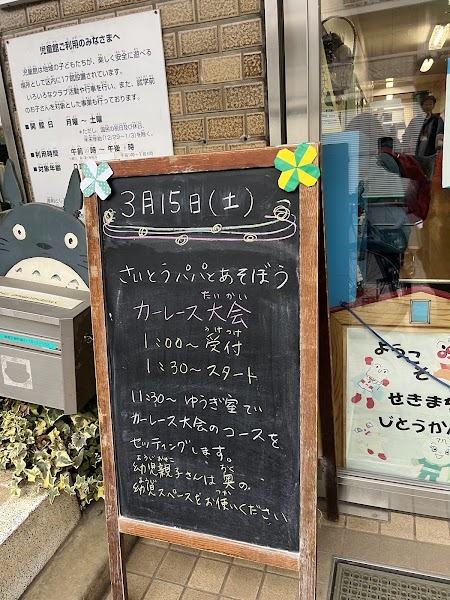 児童館ご利用のみなさまへ
児童館は地域の子どもたちが、楽しく安全に遊べる
場所として区内に17館設置されています。
いろいろなクラブ活動や行事を行い、また、就学前
のお子さんを対象とした事業も行っております。
■開館日 月曜〜土曜
■利用時間
■対象年齢
3月15日(土)
さいとうパパとあそぼう
カーレース大会
たいかい
1:00〜受付
うけつけ
1:30〜スタート
11:30〜ゆうぎ室で
カーレース大会のコースを
セッティングします。
幼児親子さんは奥の
ようじおやこ
おく
幼児スペースをお使いください
ようじ
つか
ようこそ
せきま
じどうか